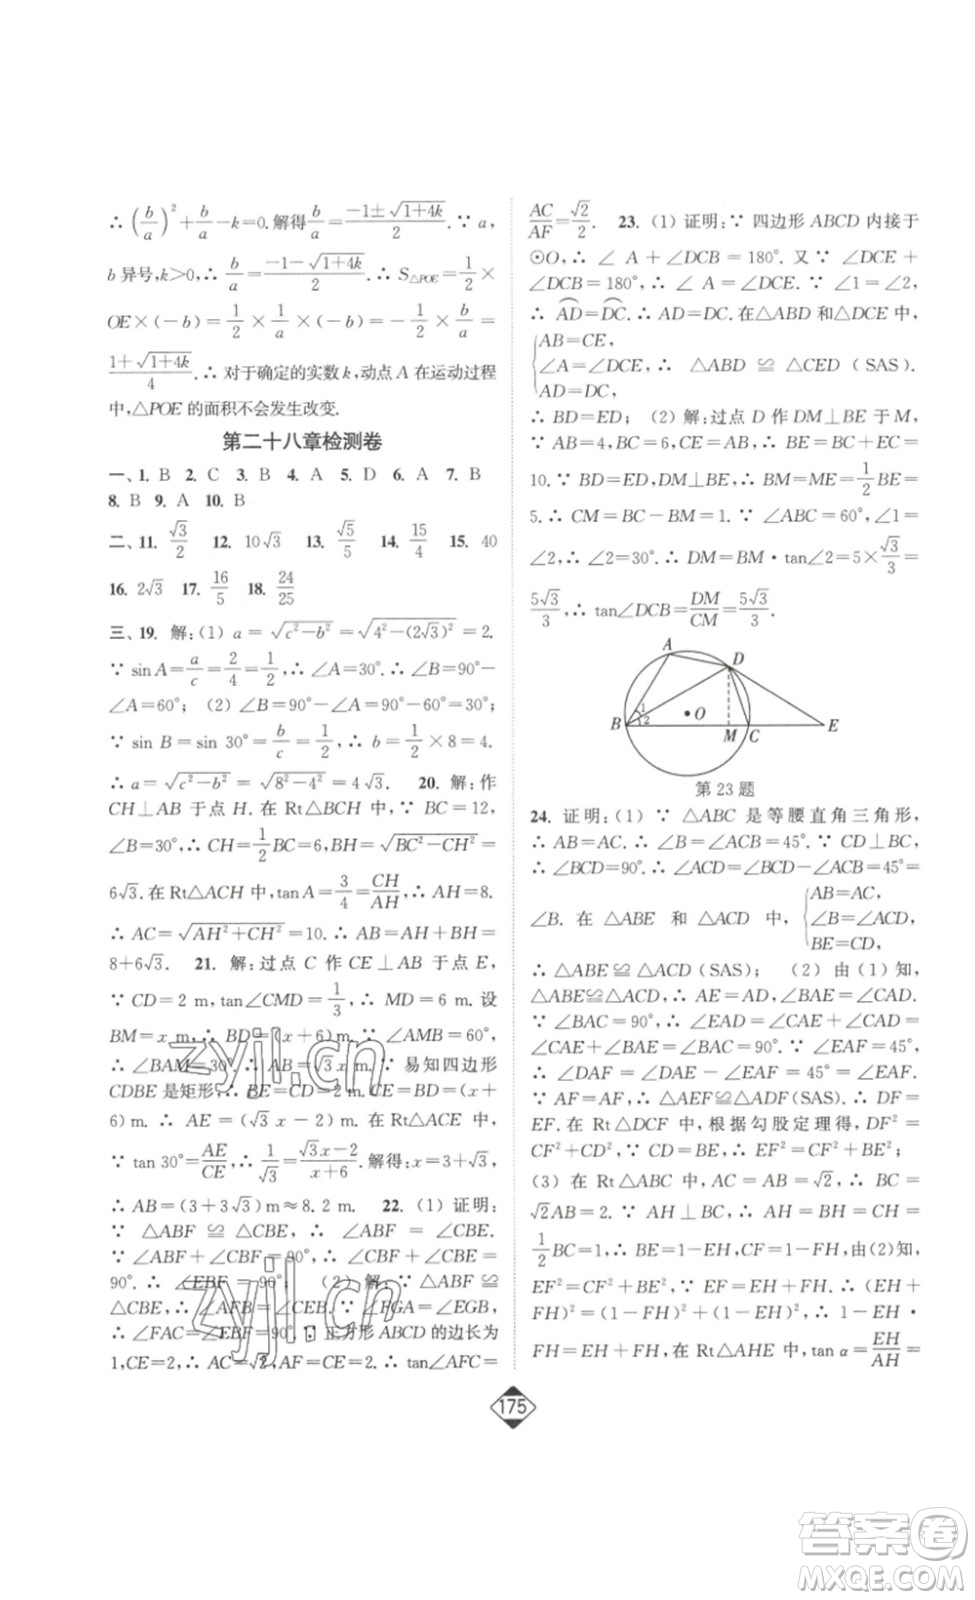 ∴ (b/a)²+b/a−k=0.解得b/a=(−1±√(1+4k))/2.∵ a,
b 异号,k>0,∴ b/a=(−1−√(1+4k))/2.∴ S△POE=1/2×
OE×(−b)=1/2×1/a×(−b)=−1/2×b/a=
(1+√(1+4k))/4.∴ 对于确定的实数 k,动点 A 在运动过程
中,△POE 的面积不会发生改变.
第二十八章检测卷
一、1. B 2. C 3. B 4. A 5. A 6. A 7. B
8. B 9. A 10. B
二、11. √3/2 12. 10√3 13. √5/5 14. 15/4 15. 40
16. 2√3 17. 16/5 18. 24/25
三、19. 解:(1) a=√(c²−b²)=√(4²−(2√3)²)=2.
∵ sin A=a/c=2/4=1/2,∴ ∠A=30°.∴ ∠B=90°−
∠A=60°; (2) ∠B=90°−∠A=90°−60°=30°;∵
sin B=sin 30°=b/c=1/2,∴ b=1/2×8=4.
∴ a=√(c²−b²)=√(8²−4²)=4√3. 20. 解:作
CH⊥AB 于点 H.在 Rt△BCH 中,∵ BC=12,
∠B=30°,∴ CH=1/2BC=6,BH=√(BC²−CH²)=
6√3.在 Rt△ACH 中,tan A=3/4=CH/AH,∴ AH=8.
∴ AC=√(AH²+CH²)=10.∴ AB=AH+BH=
8+6√3. 21. 解:过点 C 作 CE⊥AB 于点 E,
∵ CD=2 m,tan∠CMD=1/3,∴ MD=6 m.设
BM=x m,∴ BD=(x+6)m.∵ ∠AMB=60°,
∴ ∠BAM=30°.∴ AB=√3x m.∵ 易知四边形
CDBE 是矩形,∴ BE=CD=2 m,CE=BD=(x+
6)m.∴ AE=(√3x−2)m.在 Rt△ACE 中,
∵ tan 30°=AE/CE,∴ 1/√3=(√3x−2)/(x+6).解得:x=3+√3.
∴ AB=(3+3√3)m≈8.2 m. 22. (1) 证明:
∵ △ABF≌△CBE,∴ ∠ABF=∠CBE.∵
∠ABF+∠CBF=90°,∴ ∠CBF+∠CBE=
90°.∴ ∠EBF=90°; (2) 解:∵ △ABF≌
△CBE,∴ ∠AFB=∠CEB.∵ ∠FGA=∠EGB,
∴ ∠FAC=∠EBF=90°.∵ 正方形 ABCD 的边长为
1,CE=2,∴ AC=√2,AF=CE=2.∴ tan∠AFC=
AC/AF=√2/2. 23. (1) 证明:∵ 四边形 ABCD 内接于
⊙O,∴ ∠A+∠DCB=180°.又∵ ∠DCE+
∠DCB=180°,∴ ∠A=∠DCE.∵ ∠1=∠2,
∴ AD=DC.∴ AD=DC.在△ABD 和△DCE 中,
AB=CE,
∠A=∠DCE,∴ △ABD≌△CED (SAS).
AD=DC,
∴ BD=ED; (2) 解:过点 D 作 DM⊥BE 于 M,
∵ AB=4,BC=6,CE=AB,∴ BE=BC+EC=
10.∵ BD=ED,DM⊥BE,∴ BM=ME=1/2BE=
5.∴ CM=BC−BM=1.∵ ∠ABC=60°,∠1=
∠2,∴ ∠2=30°.∴ DM=BM·tan∠2=5×√3/3=
5√3/3,∴ tan∠DCB=DM/CM=5√3/3.
A D
1 2 O
B M C E
第 23 题
24. 证明:(1) ∵ △ABC 是等腰直角三角形,
∴ AB=AC.∴ ∠B=∠ACB=45°.∵ CD⊥BC,
∴ ∠BCD=90°.∴ ∠ACD=∠BCD−∠ACB=45°=
∠B. 在 △ABE 和 △ACD 中,
AB=AC,
∠B=∠ACD,
BE=CD,
∴ △ABE≌△ACD (SAS); (2) 由(1)知,
△ABE≌△ACD,∴ AE=AD,∠BAE=∠CAD.
∵ ∠BAC=90°,∴ ∠EAD=∠CAE+∠CAD=
∠CAE+∠BAE=∠BAC=90°.∵ ∠EAF=45°,
∴ ∠DAF=∠DAE−∠EAF=45°=∠EAF.
∵ AF=AF,∴ △AEF≌△ADF(SAS).∴ DF=
EF.在 Rt△DCF 中,根据勾股定理得,DF²=
CF²+CD²,∵ CD=BE,∴ EF²=CF²+BE²;
(3) 在 Rt△ABC 中,AC=AB=√2,∴ BC=
√2AB=2.∵ AH⊥BC,∴ AH=BH=CH=
1/2BC=1,∴ BE=1−EH,CF=1−FH,由(2)知,
EF²=CF²+BE²,∵ EF=EH+FH.∴ (EH+
FH)²=(1−FH)²+(1−EH)²,∴ 1−EH·
FH=EH+FH,在 Rt△AHE 中,tan α=EH/AH=
175
zyjl.cn
zyjl.cn
答案圈
MXQE.COM